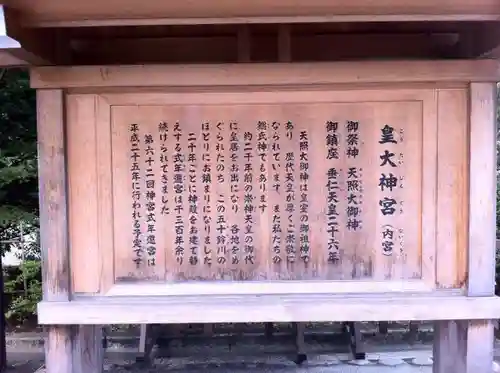 皇大神宮（内宮）
こうたいじんぐう　ないくう
御祭神　天照大御神
御鎮座　垂仁天皇二十六年
天照大御神は皇室の御祖神で
あり　歴代天皇が厚くご崇敬に
なられています　また私たちの
総氏神でもあります
約二千年前の崇神天皇の御代
に皇居をお出になり　各地をめ
ぐられたのち　この五十鈴川の
ほとりにお鎮まりになりました
二十年ごとに神殿をお建て替
えする式年遷宮は千三百年余り
続けられてきました
第六十二回神宮式年遷宮は
平成二十五年に行われる予定です